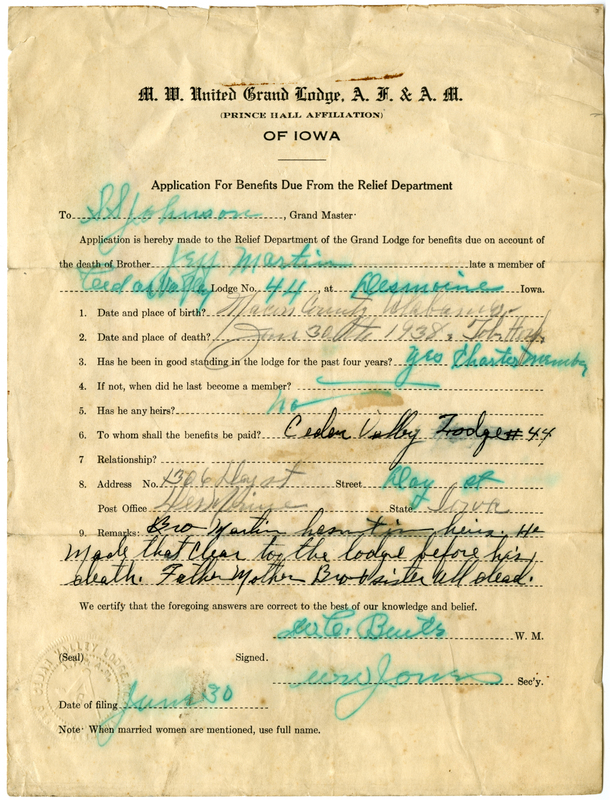 M. W. United Grand Lodge, A. F. & A. M.
(PRINCE HALL AFFILIATION)
OF IOWA
Application For Benefits Due From the Relief Department
To S S Johnson, Grand Master
Application is hereby made to the Relief Department of the Grand Lodge for benefits due on account of
the death of Brother Jeff Martin late a member of
Ceedar Vally Lodge No. 44, at Desmoines Iowa.
1. Date and place of birth? Macon County Alabama
2. Date and place of death? Jun 30th 1938.
3. Has he been in good standing in the lodge for the past four years? yes Charter member
4. If not, when did he last become a member?
5. Has he any heirs? no
6. To whom shall the benefits be paid? Cedar Valley Lodge # 44
7 Relationship?
8. Address No. 1306 Day st Street Day st
Post Office Desmoines State Iowa
9. Remarks: Bro Martin hesnt in heirs. He
Made that Clear too the lodge before his
death. Father Mother Bro & sister all dead.
We certify that the foregoing answers are correct to the best of our knowledge and belief.
W. M.
(Seal) Signed.
Wm Jones Sec'y.
Date of filing June 30
Note: When married women are mentioned, use full name.